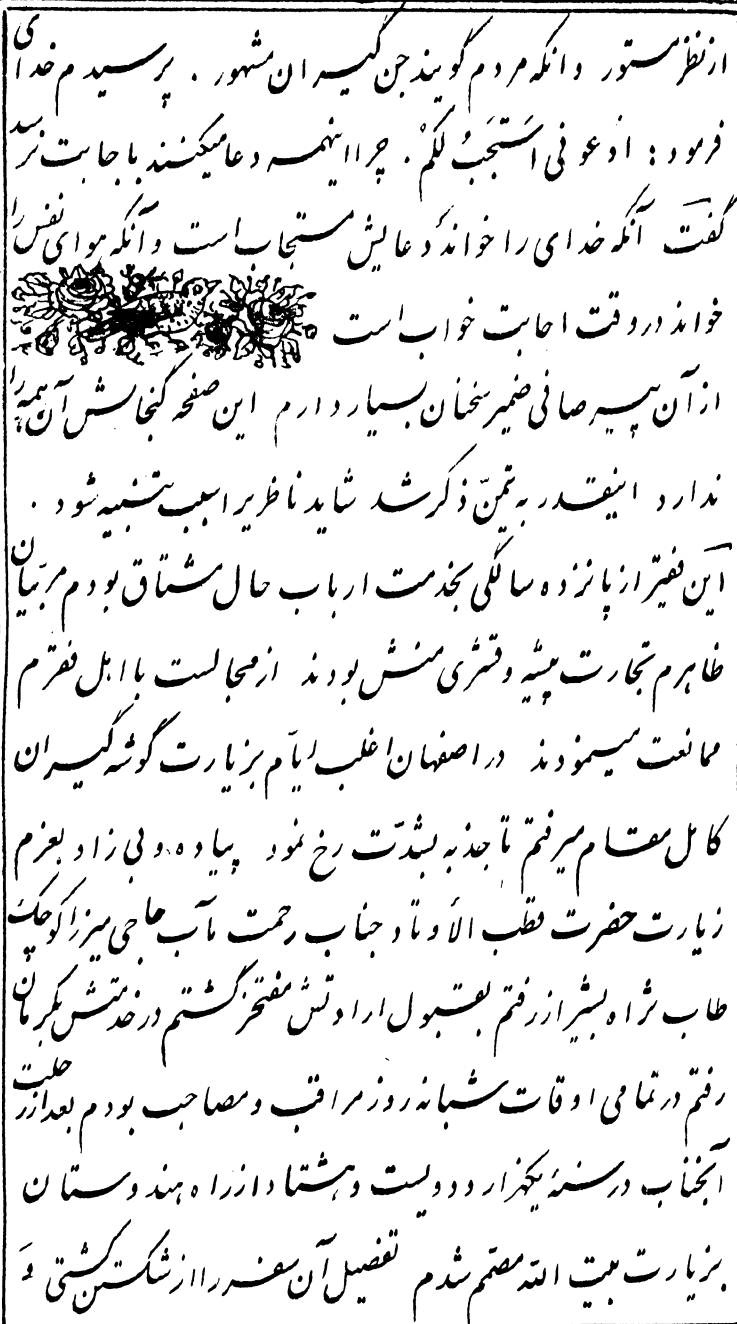 از نظر مستور و انکه مردم گویند جن گیسران مشهور . پرسیدم خدای
فرمود : ادعونی استجب لکم . چرا اینهمه دعا میکنند باجابت نرسد
گفت آنکه خدای را خواند دعایش مستجاب است و آنکه هوای نفس را
خواند در وقت اجابت خواب است
از آن پیر صافی ضمیر سخنان بسیار دارم این صفحه گنجایش آن همه را
ندارد اینقدر به تیمّن ذکر شد شاید ناظریرا سبب تنبیه شود .
این فقیر از پانزده سالگی بخدمت ارباب حال مشتاق بودم مربّیان
ظاهرم تجارت پیشه و قشری منش بودند از مجالست با اهل فقرم
ممانعت میسنمودند در اصفهان اغلب ایّام بزیارت گوشه گیران
کامل مقام میرفتم تا جذبه بشدّت رخ نمود پیاده و بی زاد بعزم
زیارت حضرت قطب الأوتاد جناب رحمت مآب حاجی میرزا کوچک
طاب ثراه بشیراز رفتم بقبول ارادتش مفتخر گشتم در خدمتش بکرمان
رفتم در تمامی اوقات شبانه روز مراقب و مصاحب بودم بعد از رحلت
آنجناب در سنهٔ یکهزار و دویست و هشتاد از راه هندوستان
بزیارت بیت الله مصمّم شدم تفصیل آن سفر را از شکستن کشتی وَ